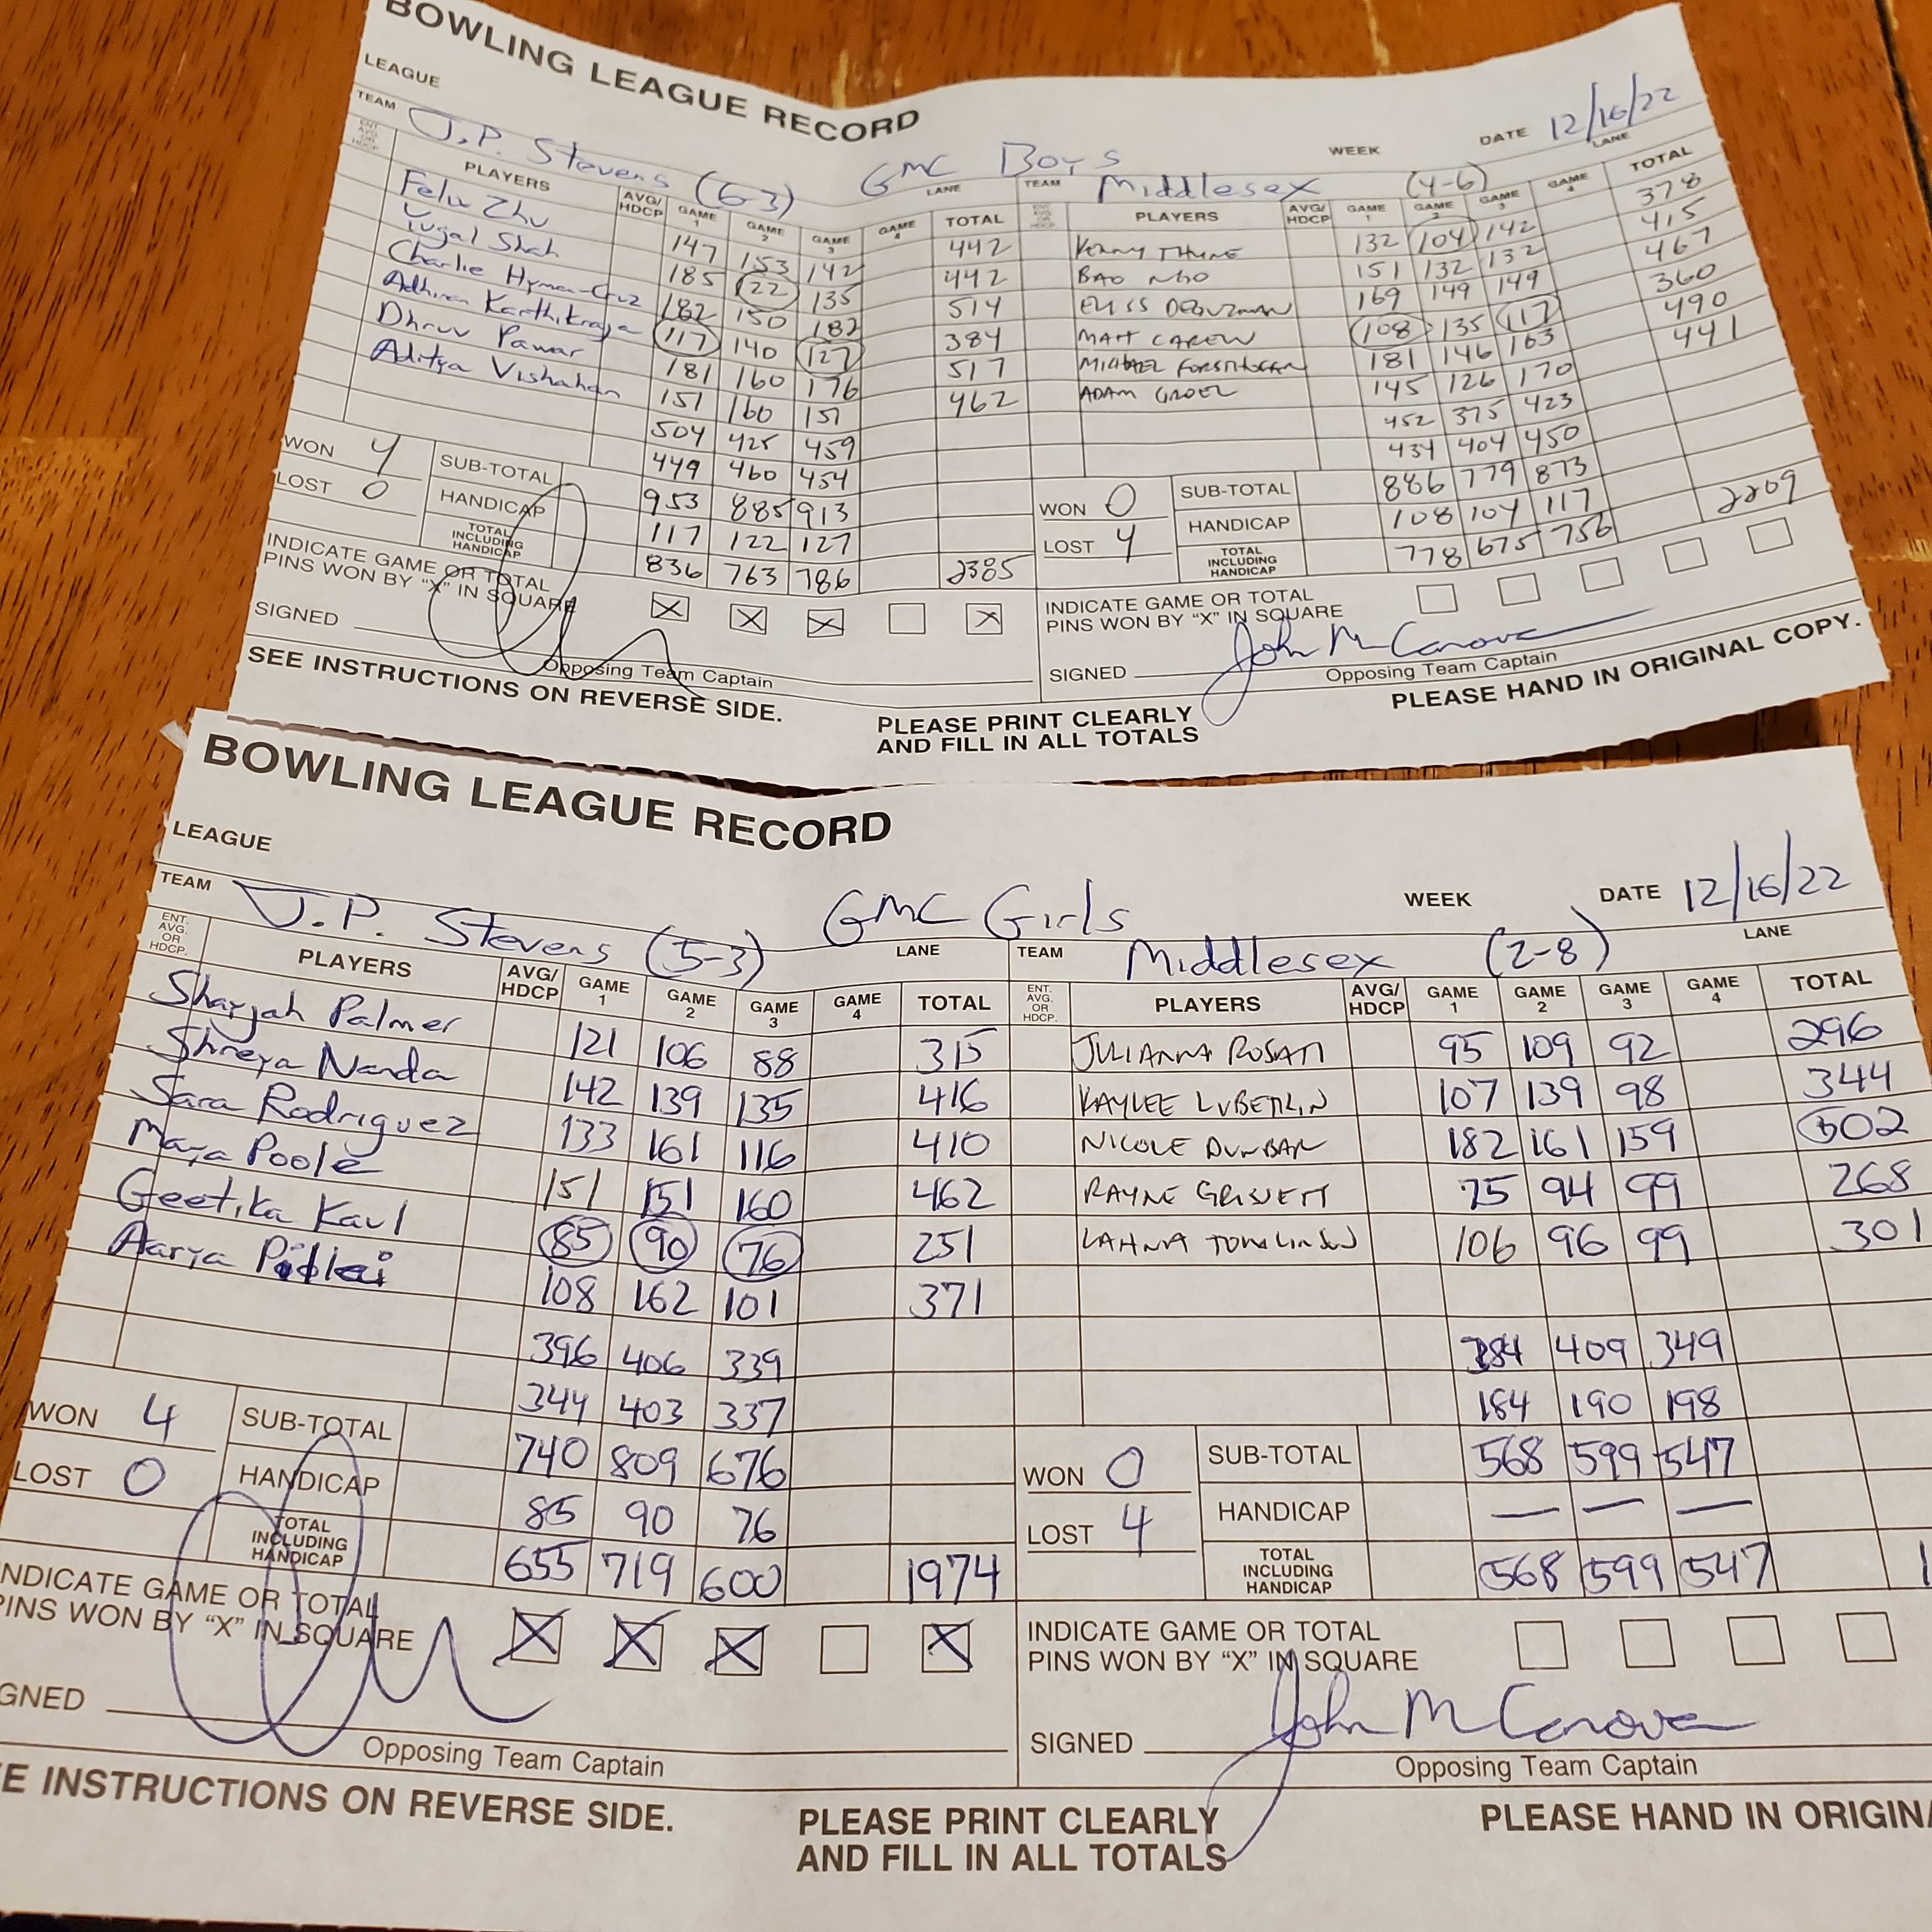 BOWLING LEAGUE RECORD
LEAGUE GMC Boys WEEK DATE 12/16/22
TEAM J.P. Stevens (6-3) LANE TEAM Middlesex (4-6) LANE
ENT. AVG. OR HDCP. PLAYERS AVG/HDCP GAME 1 GAME 2 GAME 3 GAME 4 TOTAL ENT. AVG. OR HDCP. PLAYERS AVG/HDCP GAME 1 GAME 2 GAME 3 GAME 4 TOTAL
Felix Zhu 147 153 142 442 132 104 142 378
Yugal Shah 185 122 135 442 BAO NGO 151 132 132 415
Charlie Hyman-Cruz 182 150 182 514 DEGUZMAN 169 149 149 467
117 140 127 384 MATT CAREW 108 135 117 360
Dhruv Pawar 181 160 176 517 MICHAEL 181 146 163 490
Aditya 151 160 151 462 ADAM 145 126 170 441
504 425 459 452 375 423
449 460 454 434 404 450
WON 4 SUB-TOTAL 953 885 913 WON 0 SUB-TOTAL 886 779 873
LOST 0 HANDICAP 117 122 127 LOST 4 HANDICAP 108 104 117
TOTAL INCLUDING HANDICAP 836 763 786 2385 TOTAL INCLUDING HANDICAP 778 675 756 2209
INDICATE GAME OR TOTAL INDICATE GAME OR TOTAL
PINS WON BY "X" IN SQUARE X X X X PINS WON BY "X" IN SQUARE
SIGNED SIGNED John M Canova
Opposing Team Captain Opposing Team Captain
SEE INSTRUCTIONS ON REVERSE SIDE. PLEASE PRINT CLEARLY PLEASE HAND IN ORIGINAL COPY.
AND FILL IN ALL TOTALS
BOWLING LEAGUE RECORD
LEAGUE GMC Girls WEEK DATE 12/16/22
TEAM J.P. Stevens (5-3) LANE TEAM Middlesex (2-8) LANE
ENT. AVG. OR HDCP. PLAYERS AVG/HDCP GAME 1 GAME 2 GAME 3 GAME 4 TOTAL ENT. AVG. OR HDCP. PLAYERS AVG/HDCP GAME 1 GAME 2 GAME 3 GAME 4 TOTAL
Palmer 121 106 88 315 JULIANNA ROSATI 95 109 92 296
Shreya Nanda 142 139 135 416 KAYLEE 107 139 98 344
Sara Rodriguez 133 161 116 410 NICOLE DUNBAR 182 161 159 502
Maya Poole 151 151 160 462 RAYNE 75 94 99 268
Geetika Kaul 85 90 76 251 TOMLINSON 106 96 99 301
Aarya Pillai 108 162 101 371
396 406 339 384 409 349
344 403 337 184 190 198
WON 4 SUB-TOTAL 740 809 676 WON 0 SUB-TOTAL 568 599 547
LOST 0 HANDICAP 85 90 76 LOST 4 HANDICAP — — —
TOTAL INCLUDING HANDICAP 655 719 600 1974 TOTAL INCLUDING HANDICAP 568 599 547 1
INDICATE GAME OR TOTAL INDICATE GAME OR TOTAL
PINS WON BY "X" IN SQUARE X X X X PINS WON BY "X" IN SQUARE
GNED SIGNED John M Canova
Opposing Team Captain Opposing Team Captain
E INSTRUCTIONS ON REVERSE SIDE. PLEASE PRINT CLEARLY PLEASE HAND IN ORIGIN
AND FILL IN ALL TOTALS